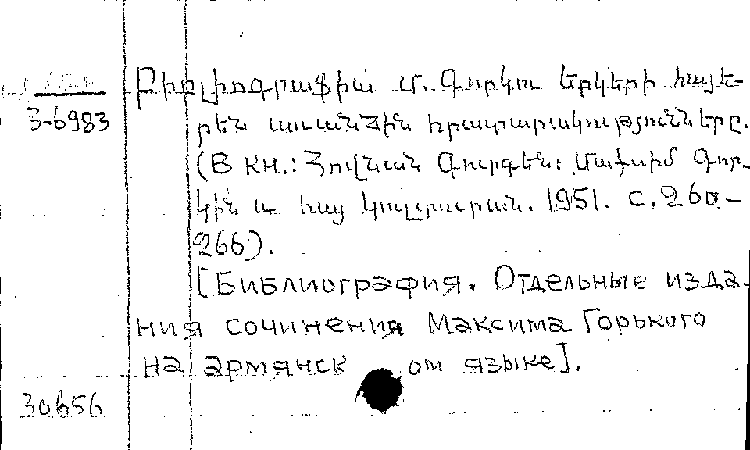 Բիբլիոգրաֆիա Մ. Գորկու երկերի հայե-
3-6983
րեն առանձին հրատարակությունները.
(В кн.: Հովնան Գուրգեն: Մաքսիմ Գոր-
կին և հայ կուլտուրան. 1951. с. 260-
266).
[Библиография. Отдельные изда-
ния сочинения Максима Горького
на армянск ом языке].
30656